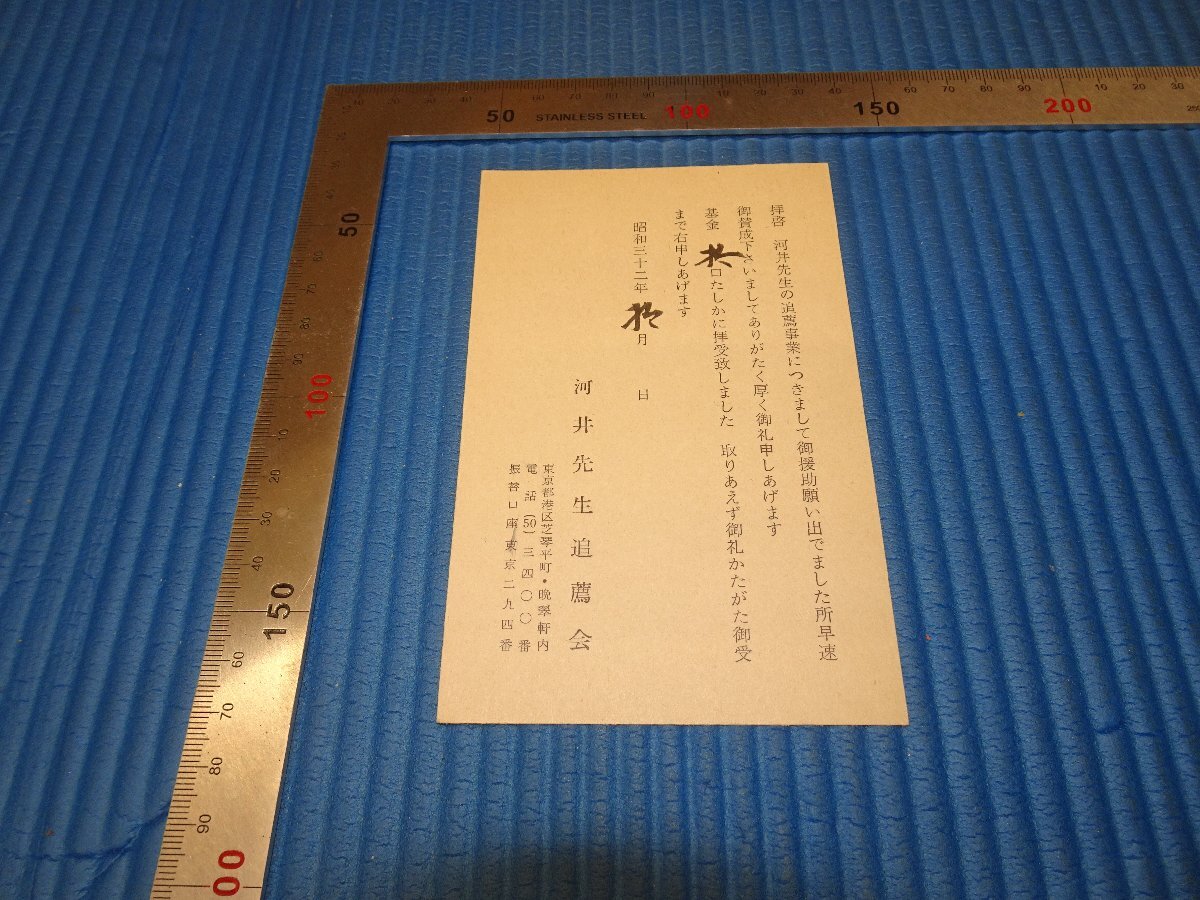 拝啓 河井先生の追薦事業につきまして御援助願い出でました所早速
御賛成下さいましてありがたく厚く御礼申しあげます
基金 口たしかに拝受致しました 取りあえず御礼かたがた御受
まで右申しあげます
昭和三十二年 月 日
河井先生追薦会
東京都港区芝琴平町・晩翠軒内
電話(50)三四〇〇番
振替口座東京二九四番
STAINLESS STEEL
10 20 30 40 50 60 70 80 90 100 10 20 30 40 150 60 70 80 90 200 10 20 30
50
100
150
60
70
80
90
00